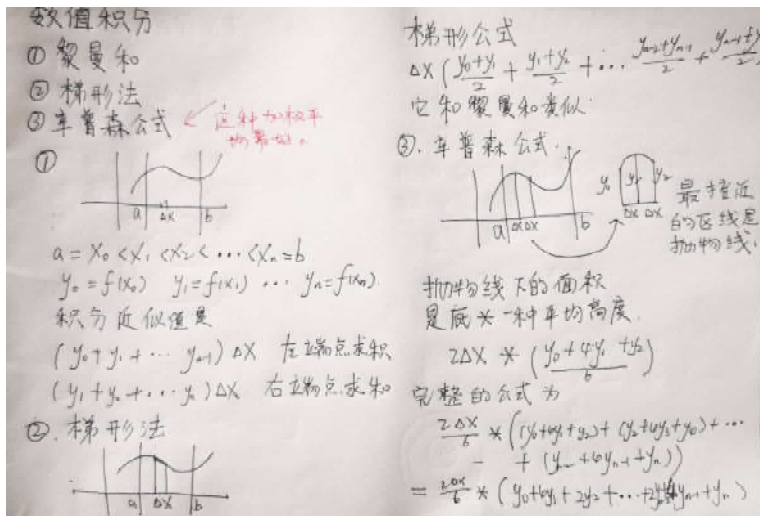 数值积分
① 黎曼和
② 梯形法
③ 辛普森公式 ← 这种加权平
均最好。
①
a Δx b
a = x₀ < x₁ < x₂ < ··· < xₙ = b
y₀ = f(x₀) y₁ = f(x₁) ··· yₙ = f(xₙ).
积分近似值是
(y₀ + y₁ + ··· yₙ₋₁) Δx 左端点求积
(y₁ + y₂ + ··· yₙ) Δx 右端点求和
②. 梯形法
a Δx b
梯形公式
Δx ( (y₀+y₁)/2 + (y₁+y₂)/2 + ··· (yₙ₋₂+yₙ₋₁)/2 + (yₙ₋₁+y
它和黎曼和类似.
③. 辛普森公式.
a Δx Δx b
y₀ y₁ y₂
Δx Δx
最接近
的区线是
抛物线.
抛物线下的面积
是底 * 一种平均高度.
2Δx * ( (y₀ + 4y₁ + y₂)/6 )
完整的公式为
2Δx/6 * ((y₀+4y₁+y₂) + (y₂+4y₃+y₀) + ···
+ (yₙ₋₂ + 4yₙ₋₁ + yₙ))
= 2Δx/6 * (y₀ + 4y₁ + 2y₂ + ··· + 4yₙ₋₁ + yₙ)